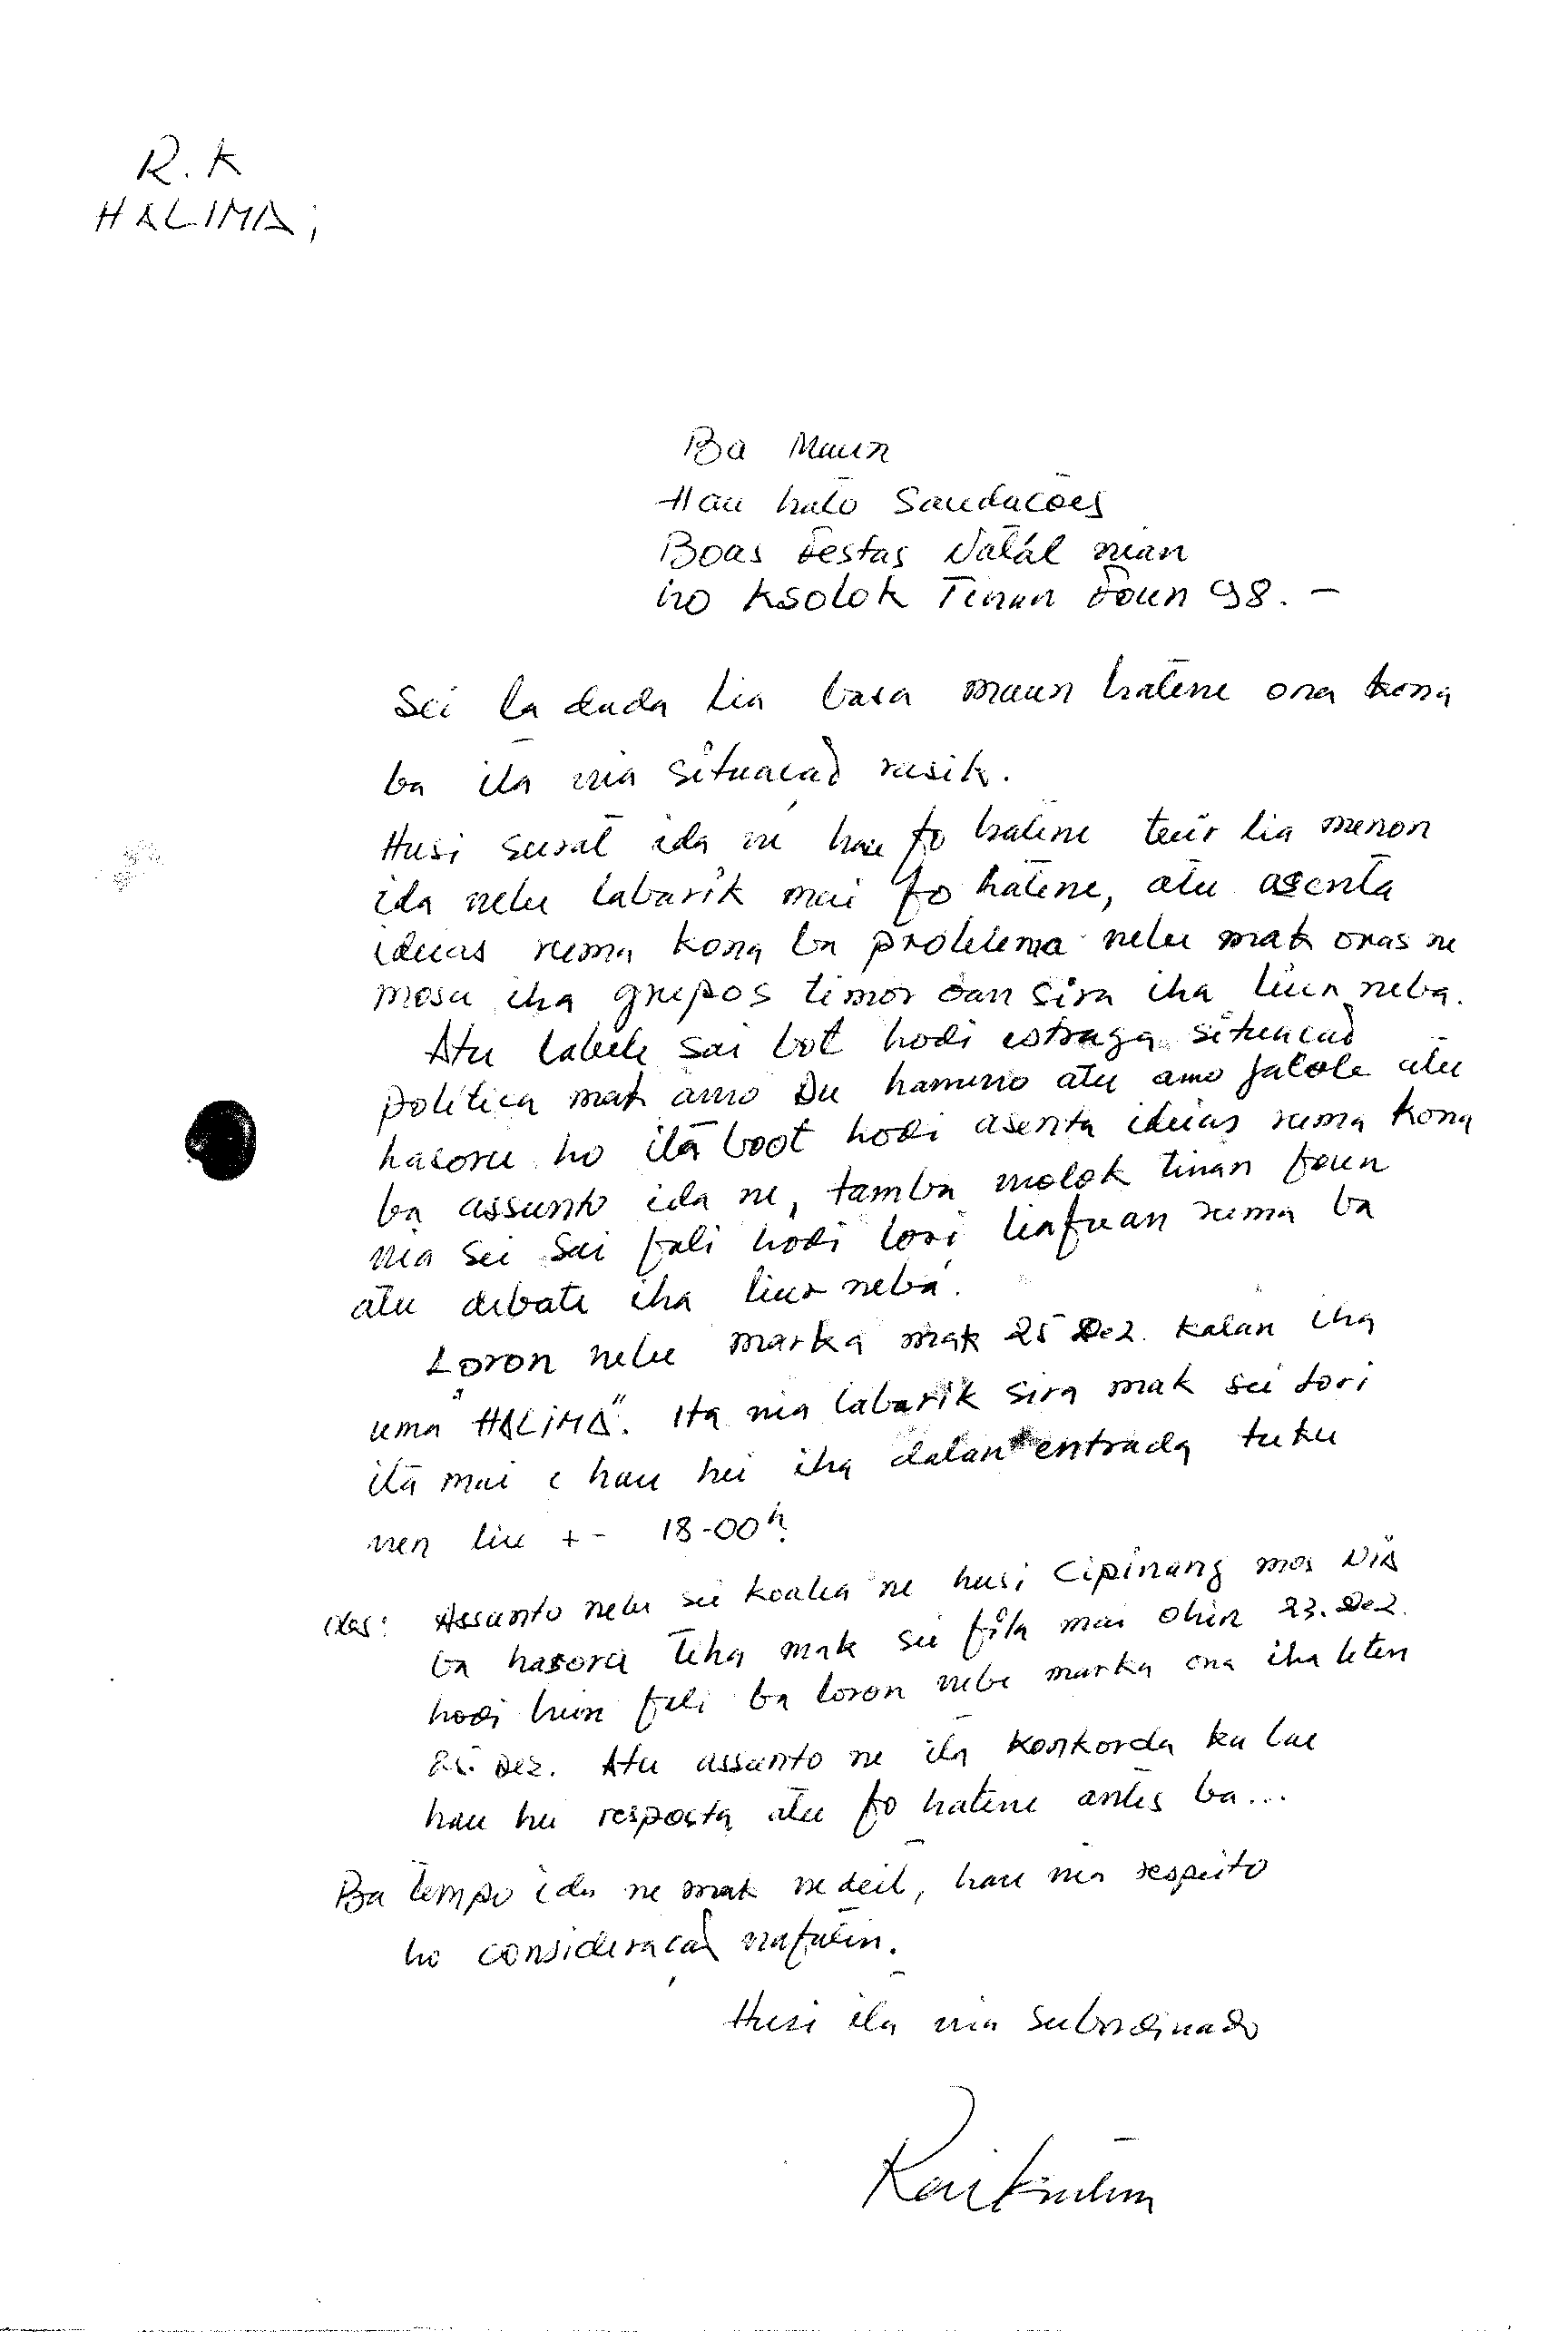 R.K
HALIMA;
Ba Maun
Hau hato Saudacões
Boas Festas Natál nian
ho Ksolok Tinan Foun 98. -
Sei la dada lia basa maun hatene ona kona
ba ita nia situacaõ rasik.
Husi surat ida ne hau fo hatene tuir lia menon
ida nebe labarik mai fo hatene, atu asenta
ideias ruma kona ba problema nebe mak oras ne
mosu iha grupos timor oan sira iha liur neba.
Atu labele sai bot hodi estraga situacaõ
politica mak amo Du hameno atu amo fatole atu
hasoru ho ita boot hodi asenta ideias ruma kona
ba assunto ida ne, tamba molok tinan foun
nia sei sai fali hodi lori liafuan ruma ba
atu debate iha liur nebá.
Loron nebe marka mak 25 Dez. kalan iha
uma "HALIMA". Ita nia labarik sira mak sei tori
ita mai e hau hei iha dalan entrada tuku
nen liu +- 18-00h.
Assunto nebe sei koalia ne husi Cipinang mos NIA
ba hasoru tiha mak sei fila mai ohin 23. Dez.
hodi hein fali ba loron nebe marka ona iha leten
25. Dez. Atu assunto ne ita konkorda ka lae
hau hei resposta atu fo hatene antes ba...
Ba tempo ida ne mak ne deit, hau nia respeito
ho consideraçaõ nafatin.
Husi ita nia subordinado